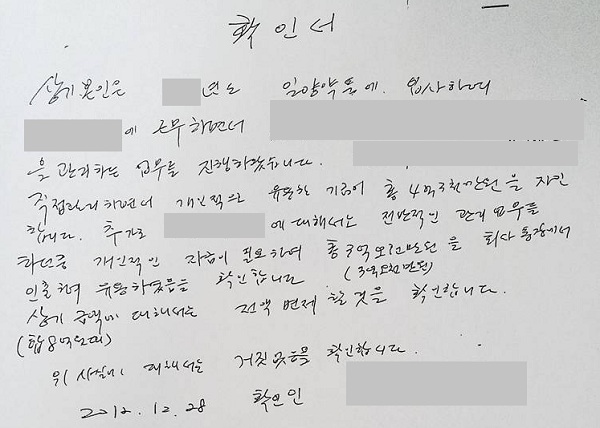 확인서
상기 본인은 년도 일양약품에 입사하여
에 근무하면서
을 관리하는 업무를 진행하였습니다.
직접관리하면서 개인적으로 유용한 기금이 총 4억3천만원을 자인
합니다. 추가로 에 대해서도 전반적인 관리 업무를
하던중 개인적인 자금이 필요하여 총 3억오천만원을 회사 통장에서
(3억오천만원)
인출하여 유용하였음을 확인합니다
상기 금액에 대해서는 전액 변제 할 것을 확인합니다.
(합8억원대)
위 사실에 대해서는 거짓없음을 확인합니다.
2012.12.28 확인인